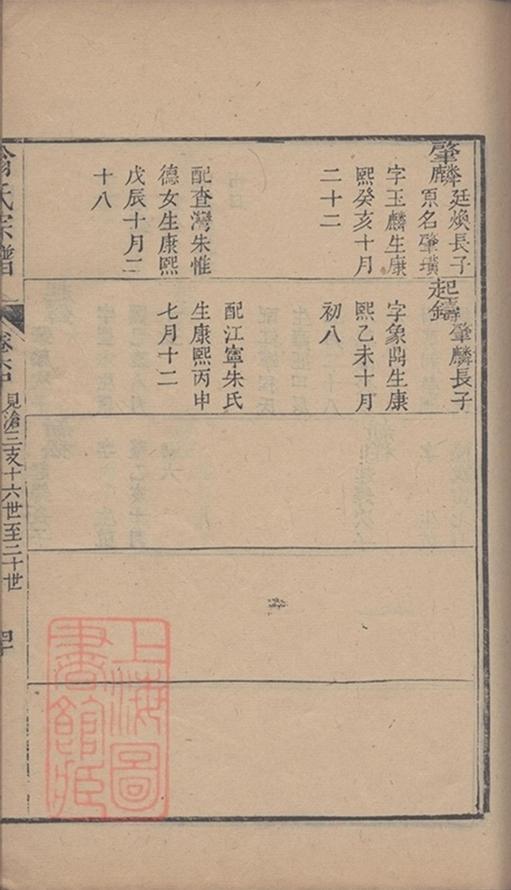 肇麟
廷煥長子
原名肇璜
字玉麟生康
熙癸亥十月
二十二
配查灣朱惟
德女生康熙
戊辰十月二
十八
起鑄
肇麟長子
字象鼎生康
熙乙未十月
初八
配江寧朱氏
生康熙丙申
七月十二
翁氏宗譜
卷六
見滄三支十六世至二十世
上海圖
書館藏